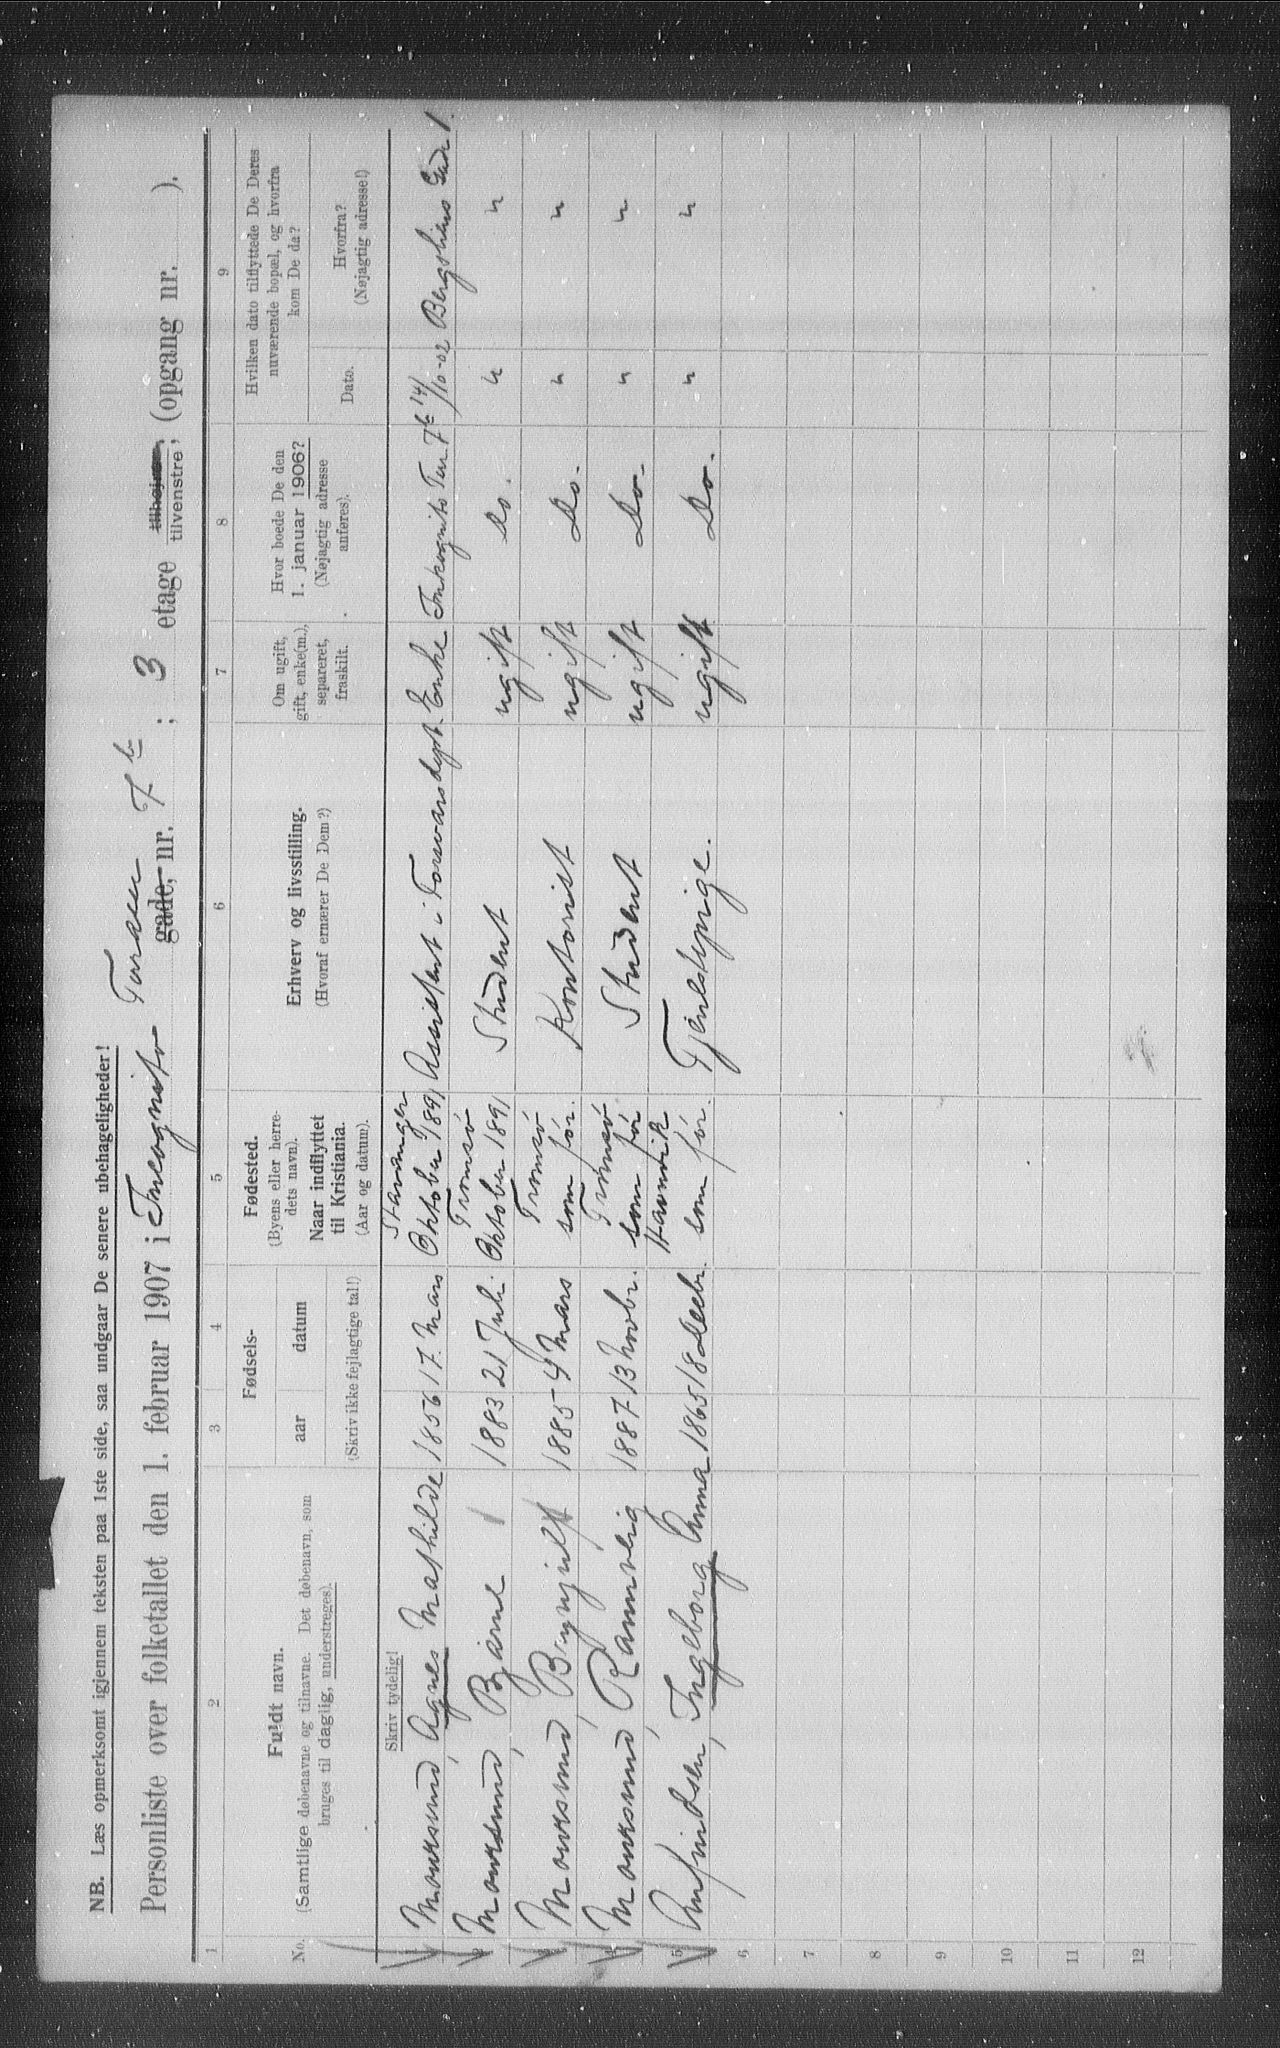 NB. Læs opmerksomt igjennem teksten paa 1ste side, saa undgaar De senere ubehageligheder!
Personliste over folketallet den 1. februar 1907 i Incognito Terassen gade, nr. 7 b; 3 etage tilhøjre, tilvenstre, (opgang nr. ).
1 2 3 4 5 6 7 8 9
No.
Fuldt navn.
(Samtlige døbenavne og tilnavne. Det døbenavn, som
bruges til daglig, understreges).
Fødsels-
aar datum
(Skriv ikke fejlagtige tal!)
Fødested.
(Byens eller herre-
dets navn).
Naar indflyttet
til Kristiania.
(Aar og datum).
Erhverv og livsstilling.
(Hvoraf ernærer De Dem?)
Om ugift,
gift, enke(m.),
separeret,
fraskilt.
Hvor boede De den
1. januar 1906?
(Nøjagtig adresse
anføres).
Hvilken dato tilflyttede De Deres
nuværende bopæl, og hvorfra
kom De da?
Dato.
Hvorfra?
(Nøjagtig adresse!)
Skriv tydelig!
Stavanger
MourSund, Agnes Mathilde 1856 17 Mars Oktober 1891 Assistent i Forsvarsdept. Enke Inkognito Terr. 7b 14/10-02 Bergsliens Gade 1.
Tromsö
2 Moursund, Bjarne 1883 21 Juli Oktober 1891 Student ugift do. " "
Tromsö
Moursund, Brynjulf 1885 4 Mars som før. Kontorist ugift Do. " "
Tromsö
Moursund, Rannveig 1887 13 Novbr. som før Student ugift Do. " "
Havnvik
5 Arfindsen, Ingeborg Anna 1865 18 Decbr. som før. Tjenestepige. ugift Do. " "
6
7
8
9
10
11
12